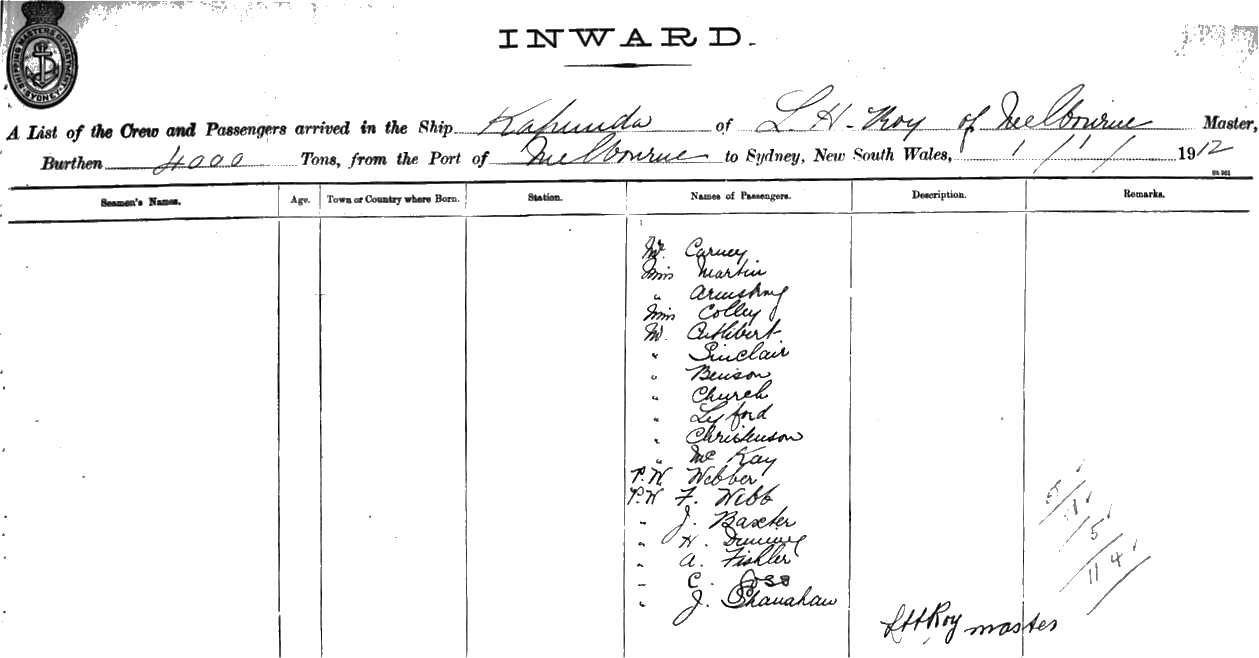 SHIPPING MASTERS DEPARTMENT
SYDNEY
INWARD.
A List of the Crew and Passengers arrived in the Ship Kapunda of L. H. Roy of Melbourne Master,
Burthen 4000 Tons, from the Port of Melbourne to Sydney, New South Wales, 1/1/ 1912
Seamen's Names. Age. Town or Country where Born. Station. Names of Passengers. Description. Remarks.
Mr. Carney
Miss Martin
" Armstrong
Miss Colley
Mr. Cuthbert
" Sinclair
" Benson
" Church
" Lyford
" Christenson
" McKay
P.W. Webber
P.W F. Webb
" J. Baxter
" H.
" A. Fishler
" C.
" J. Shanahan
5/1/5/11 4
LHRoy master